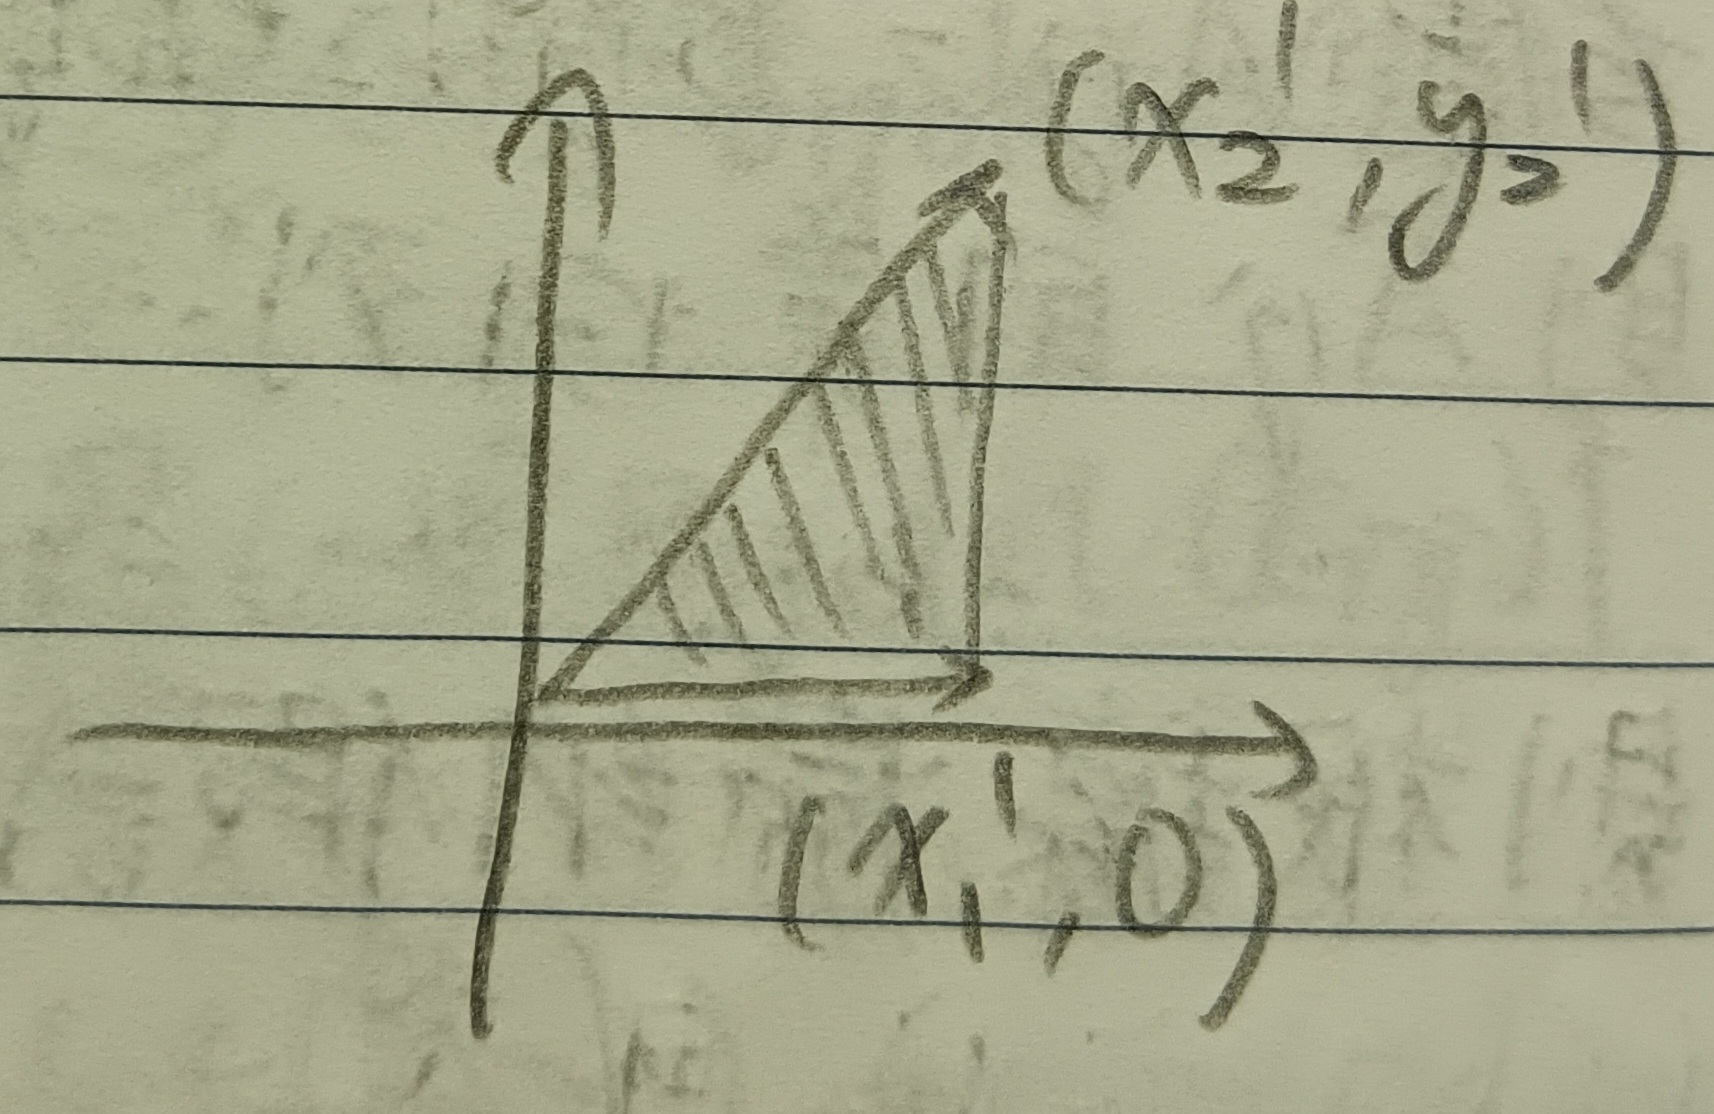 (x₂', y₂')
(x₁', 0)